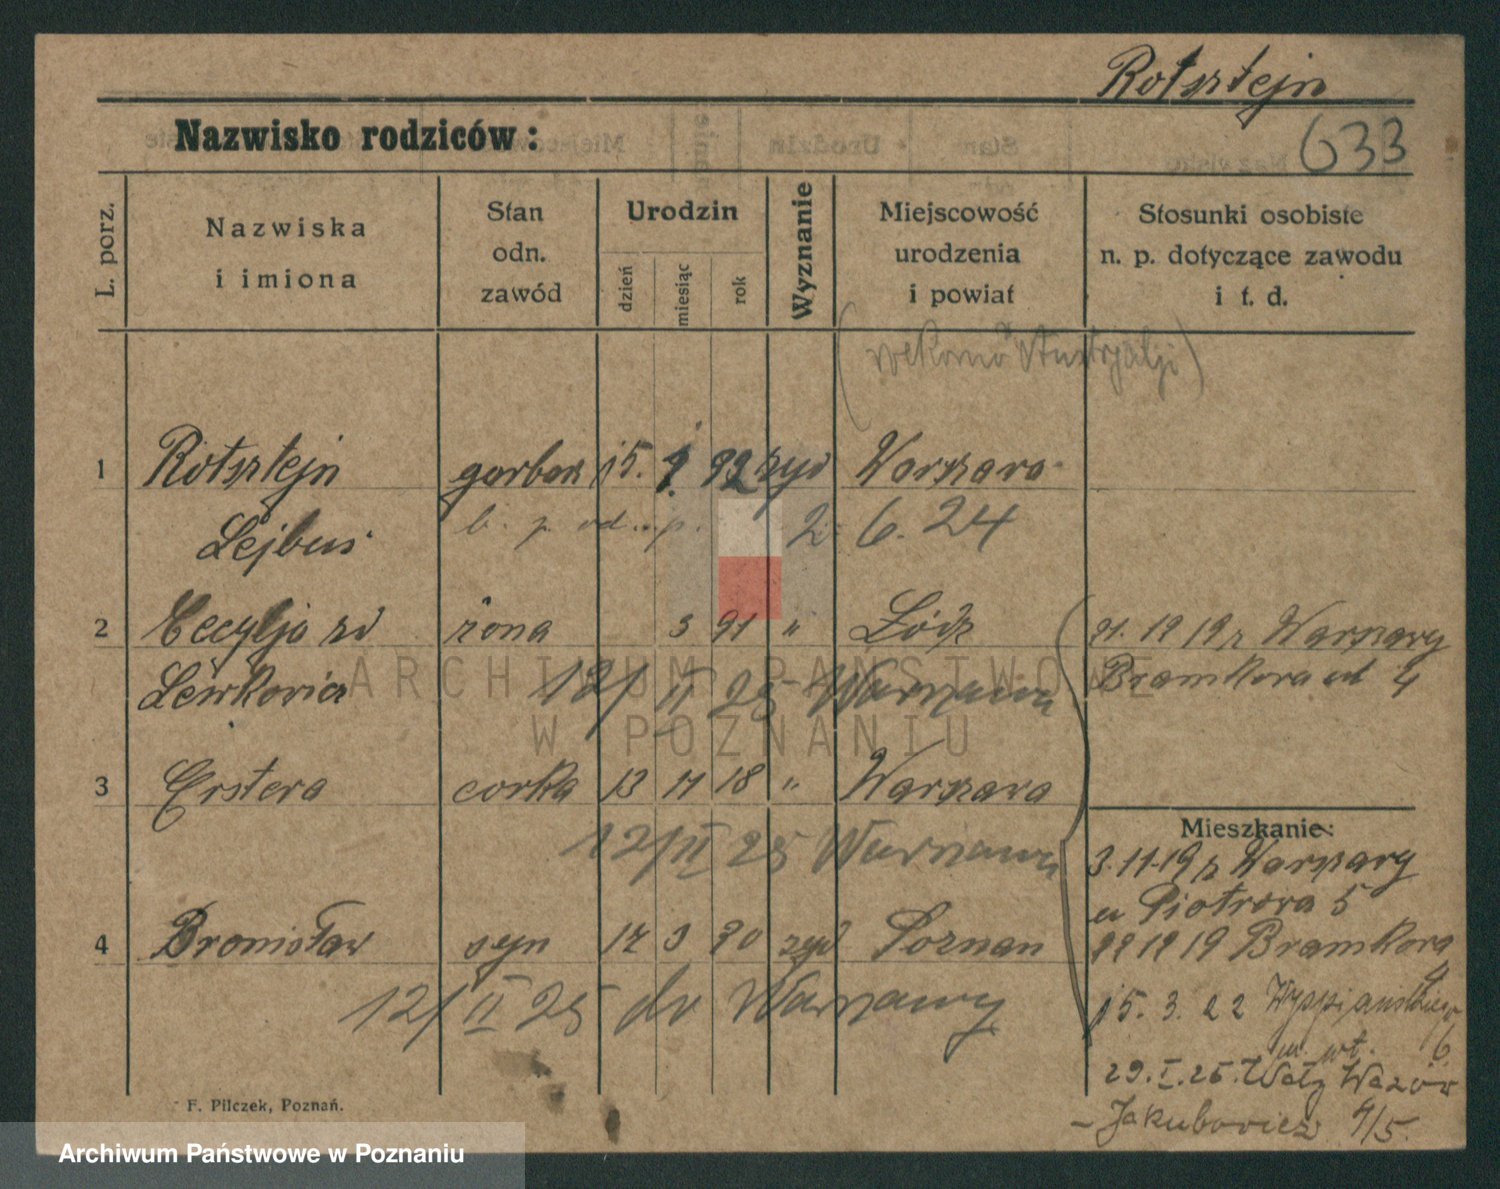 Rotsztejn
633
Nazwisko rodziców:
L. porz.
Nazwiska
i imiona
Stan
odn.
zawód
Urodzin
dzień
miesiąc
rok
Wyznanie
Miejscowość
urodzenia
i powiat
Stosunki osobiste
n. p. dotyczące zawodu
i t. d.
(rekomo Australji)
1 Rotsztejn garbarz 15. 9. 92 żyd Warszawa
Lejbus 2 6. 24
2 Cecylja zd żona 3 91 " Łódź
Lewkowicz 12/ II 25 Warszawa
21. 12 19 z Warszawy
Bramkowa 4
3 Estera corka 13 11 18 " Warszawa
12/II 25 Warszawa
Mieszkanie:
3.11.19 z Warszawy
Piotrowa 5
4 Bronisław syn 12 3 20 żyd Poznan
22 12 19 Bramkowa 4
12/ II 25 do Warszawy
15. 3. 22 Wyspianskiego 6
29. I. 25. Wały Wazów
Jakubowicz 4/5.
F. Pilczek, Poznań.
ARCHIWUM PAŃSTWOWE
W POZNANIU
Archiwum Państwowe w Poznaniu